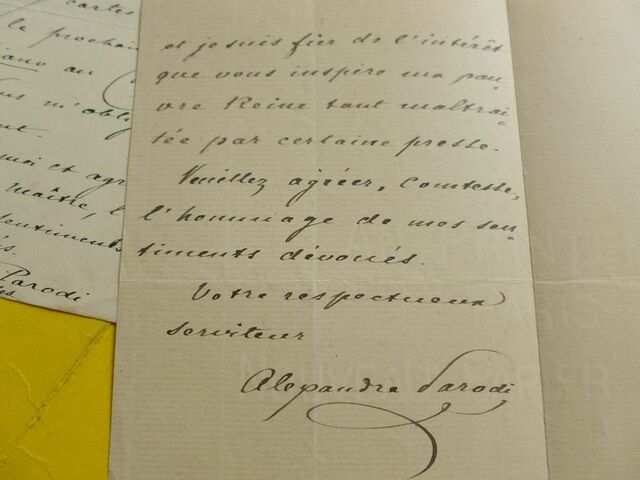 cartes
le prochain
piano au
m'oblig
et agr
maître, l
sentiments
Parodi
et je suis fier de l'intérêt
que vous inspire ma pau-
vre Reine tant maltrai-
tée par certaine presse.
Veuillez agréer, Comtesse,
l'hommage de mes sen-
timents dévoués.
Votre respectueux
serviteur
Alexandre Parodi